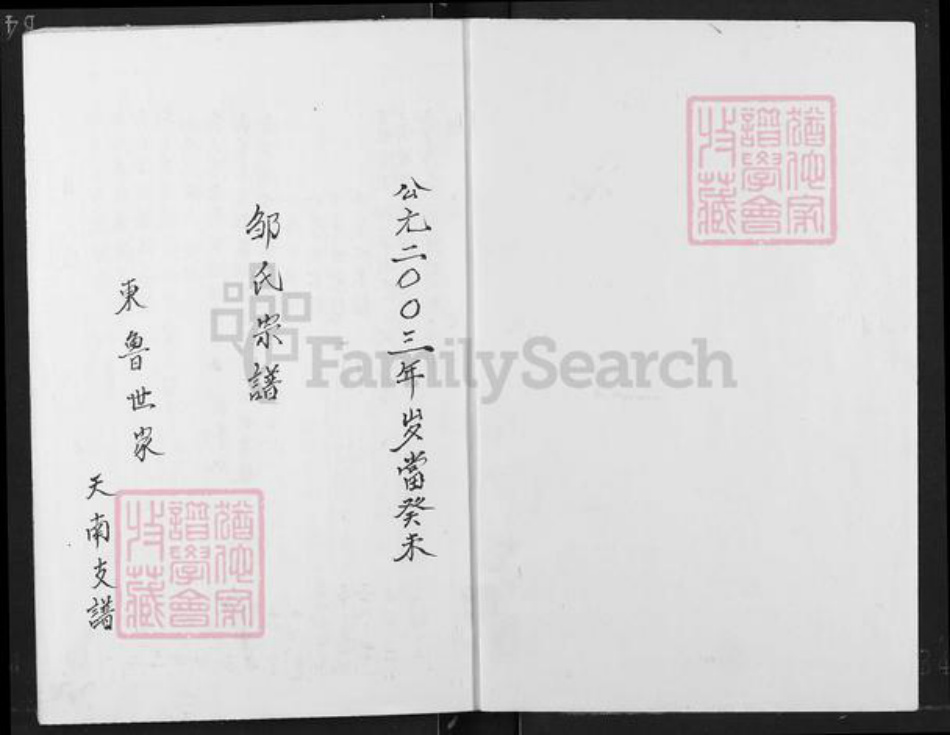 公元二〇〇三年岁當癸未
邹氏宗譜
東魯世家
天南支譜
猶他家
譜學會
收藏
猶他家
譜學會
收藏
FamilySearch